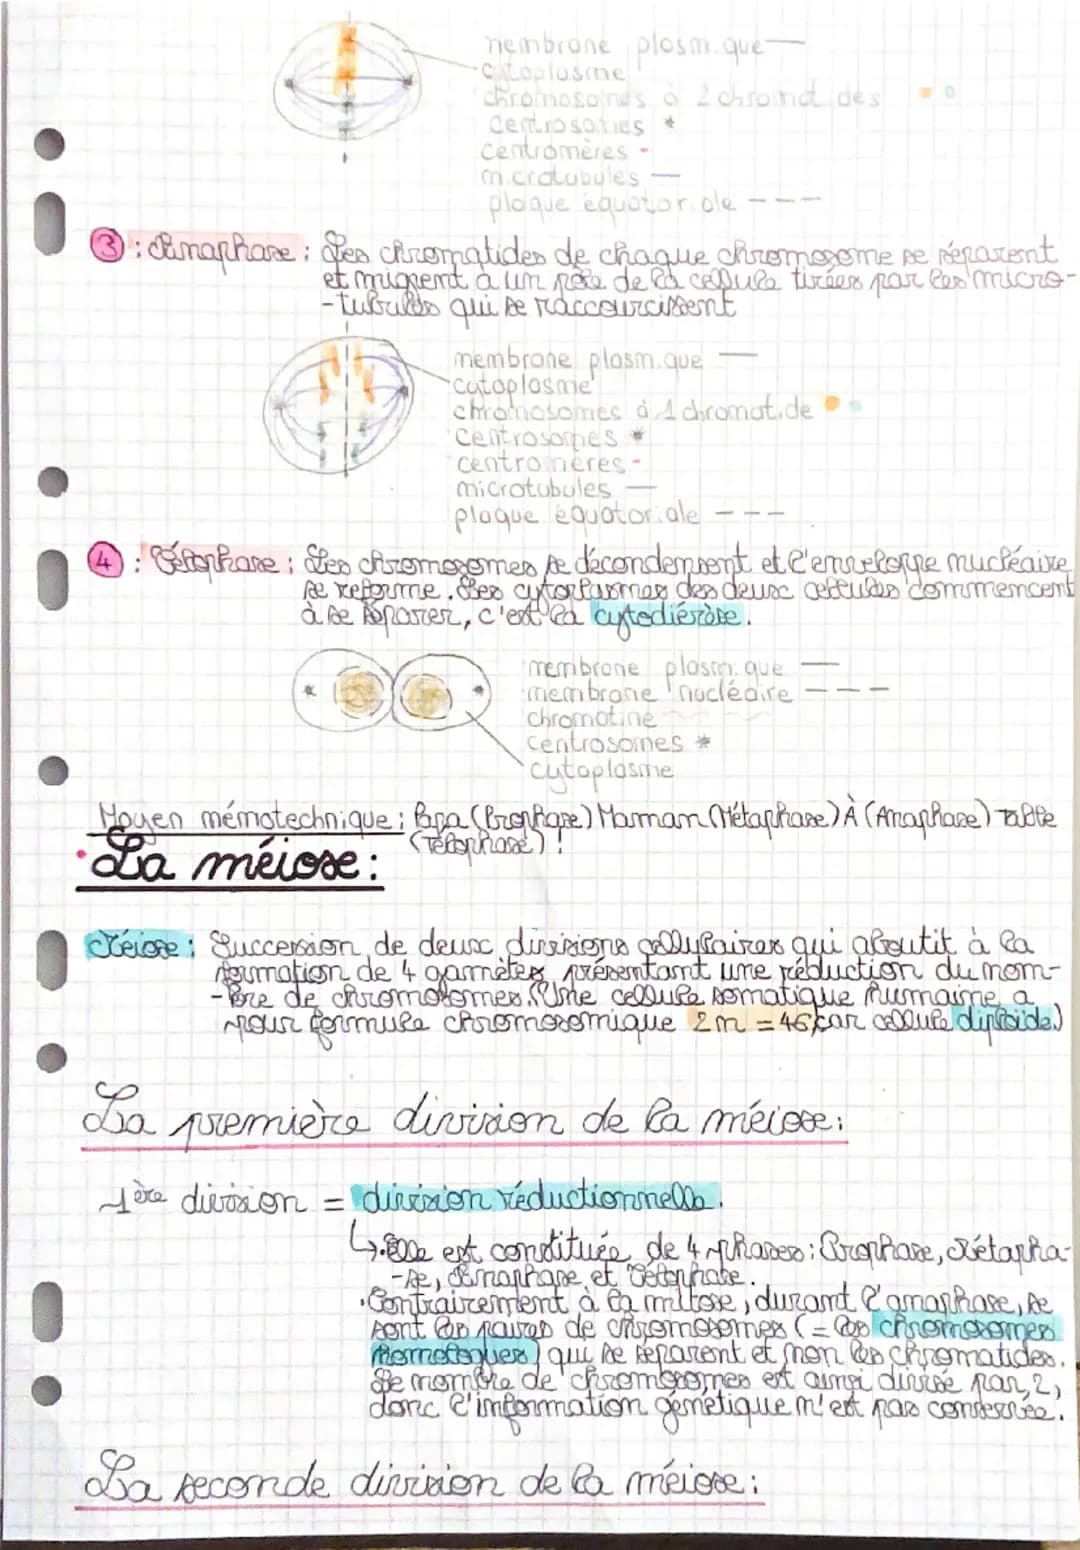 membrane plasmique
cytoplasme
chromosomes à 2 chromatides
centrosomes *
centromères -
microtubules
plaque équatoriale
3 : Anaphase : Les chromatides de chaque chromosome se séparent
et migrent à un pôle de la cellule tirées par les micro-
-tubules qui se raccourcissent
membrane plasmique
cytoplasme
chromosomes à 1 chromatide
centrosomes *
centromères -
microtubules
plaque équatoriale
4 : Télophase : Les chromosomes se décondensent et l'enveloppe nucléaire
se reforme. Les cytoplasmes des deux cellules commencent
à se séparer, c'est la cytodiérèse.
membrane plasmique
membrane nucléaire
chromatine
centrosomes *
cytoplasme
Moyen mémotechnique : Papa (Prophase) Maman (Métaphase) À (Anaphase) Table
(Télophase) !
• La méiose :
Méiose : Succession de deux divisions cellulaires qui aboutit à la
formation de 4 gamètes présentant une réduction du nom-
-bre de chromosomes. (Une cellule somatique humaine a
pour formule chromosomique 2n = 46, car cellule diploïde.)
La première division de la méiose :
1ère division = division réductionnelle.
↳ • Elle est constituée de 4 phases : Prophase, Métapha-
-se, Anaphase et Télophase.
• Contrairement à la mitose, durant l'anaphase, se
sont les paires de chromosomes (= les chromosomes
homologues) qui se séparent et non les chromatides.
Le nombre de chromosomes est ainsi divisé par 2,
donc l'information génétique n'est pas conservée.
La seconde division de la méiose :